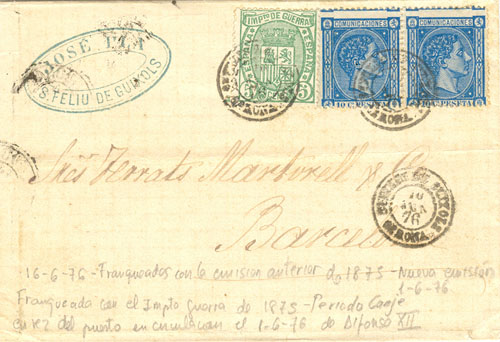 JOSÉ
S. FELIU DE GUIXOLS
IMPTO DE GUERRA
ESPAÑA
5 5
COMUNICACIONES
10 CS PESETA
COMUNICACIONES
PESETA
Sres Ferrats Marturell & Co
GUIXOLS
16
76
GERONA
Barcel
16-6-76 - Franqueados con la emision anterior do 1875 - Nueva emisión
1-6-76
Franqueada con el Impto guerra de 1875 - Periodo Canje
en vez del puesto en circulacion el 1-6-76 de Alfonso XII